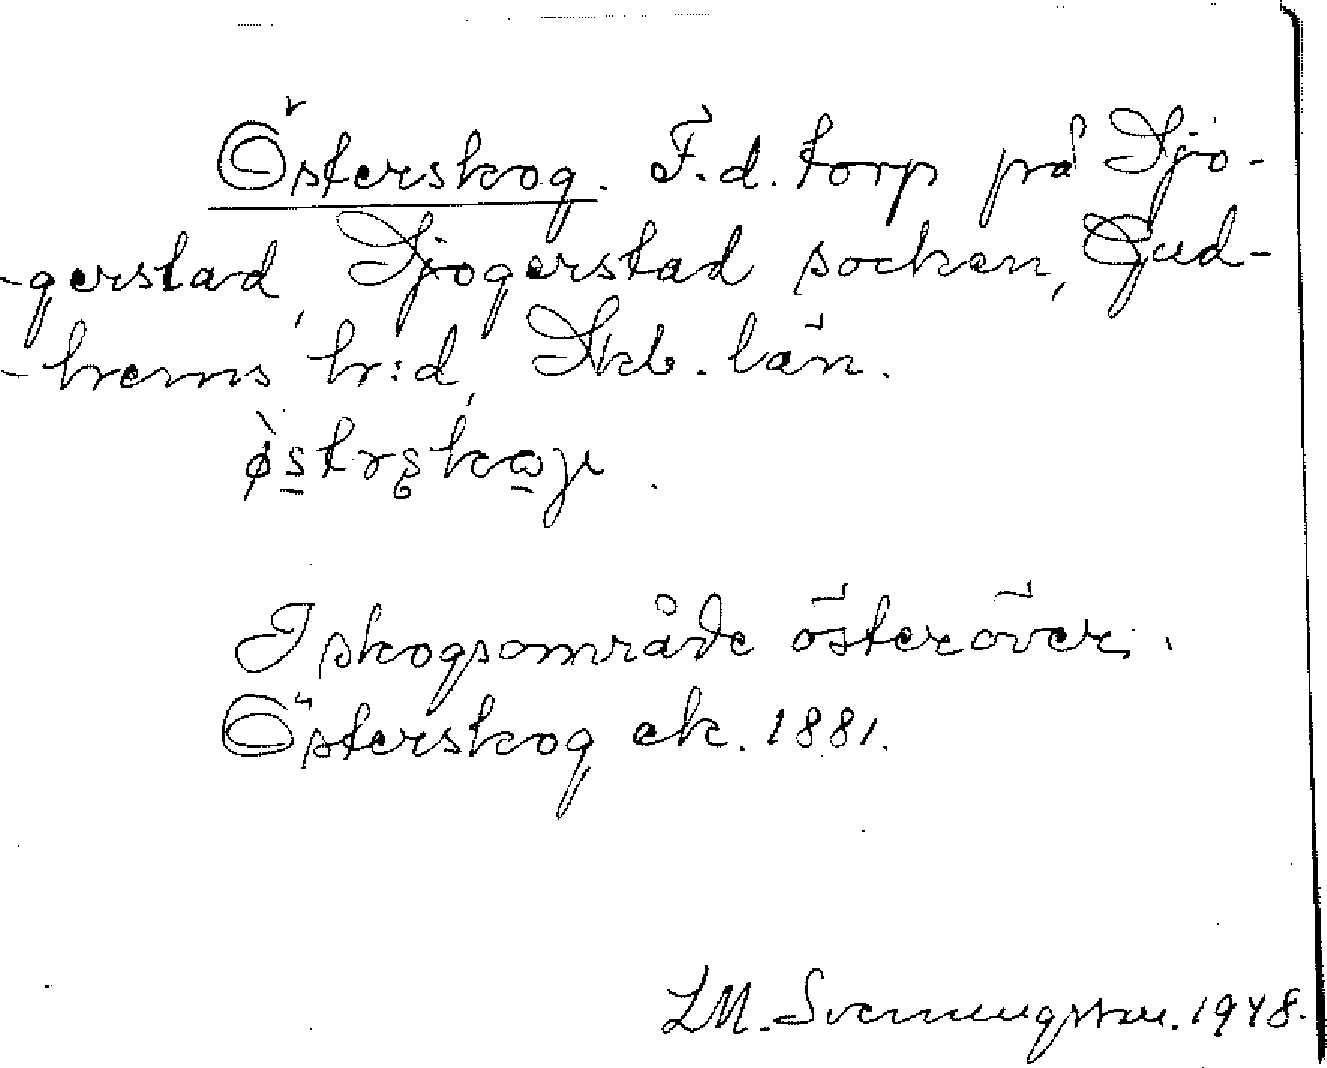 Österskog. F.d. torp på Sjo-
-gerstad, Sjogerstad socken, Gud-
-hems hr:d, Skb. län.
I skogsområde österöver.
Österskog ek. 1881.
LM. Svenungsson. 1948.